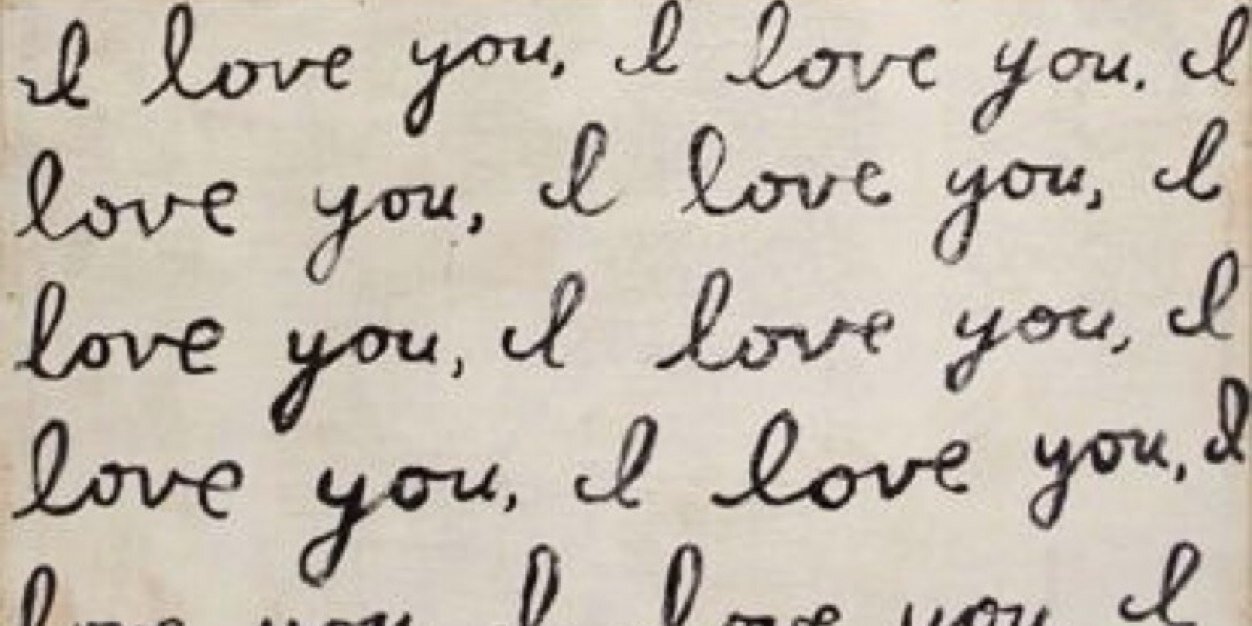 I love you, I love you. I
love you, I love you, I
love you, I love you, I
love you, I love you, I
love you I love you I